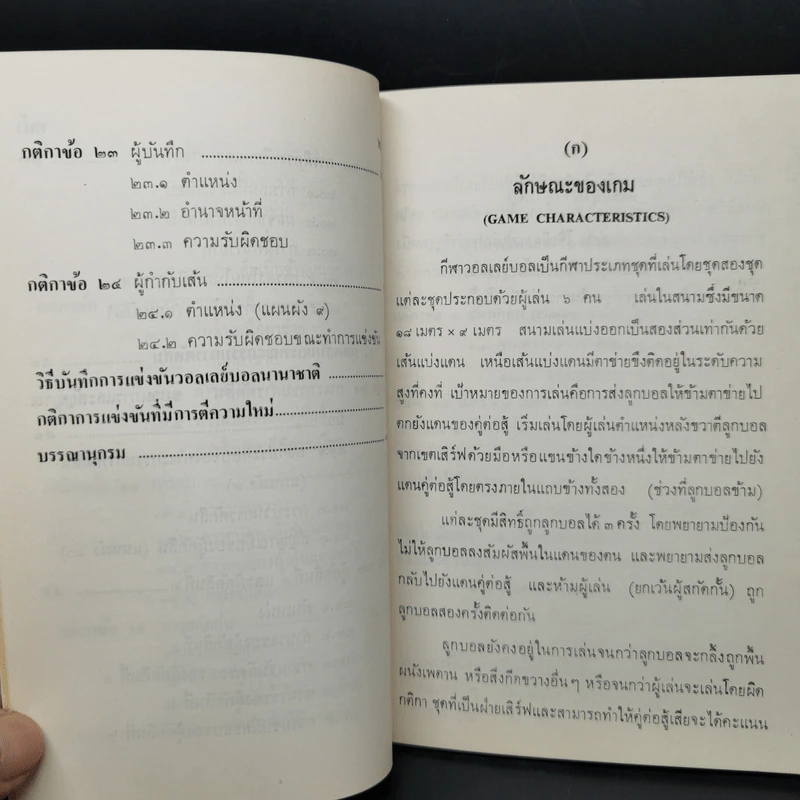 กติกาข้อ ๒๓ ผู้บันทึก
๒๓.๑ ตำแหน่ง
๒๓.๒ อำนาจหน้าที่
๒๓.๓ ความรับผิดชอบ
กติกาข้อ ๒๔ ผู้กำกับเส้น
๒๔.๑ ตำแหน่ง (แผนผัง ๙)
๒๔.๒ ความรับผิดชอบขณะทำการแข่งขัน
วิธีบันทึกการแข่งขันวอลเลย์บอลนานาชาติ
กติกาการแข่งขันที่มีการตีความใหม่
บรรณานุกรม
(ก)
ลักษณะของเกม
(GAME CHARACTERISTICS)
กีฬาวอลเลย์บอลเป็นกีฬาประเภทชุดที่เล่นโดยชุดสองชุด
แต่ละชุดประกอบด้วยผู้เล่น ๖ คน เล่นในสนามซึ่งมีขนาด
๑๘ เมตร × ๙ เมตร สนามเล่นแบ่งออกเป็นสองส่วนเท่ากันด้วย
เส้นแบ่งแดน เหนือเส้นแบ่งแดนมีตาข่ายขึงติดอยู่ในระดับความ
สูงที่คงที่ เป้าหมายของการเล่นคือการส่งลูกบอลให้ข้ามตาข่ายไป
ตกยังแดนของคู่ต่อสู้ เริ่มเล่นโดยผู้เล่นตำแหน่งหลังขวาตีลูกบอล
จากเขตเสิร์ฟด้วยมือหรือแขนข้างใดข้างหนึ่งให้ข้ามตาข่ายไปยัง
แดนคู่ต่อสู้โดยตรงภายในแถบข้างทั้งสอง (ช่วงที่ลูกบอลข้าม)
แต่ละชุดมีสิทธิ์ถูกลูกบอลได้ ๓ ครั้ง โดยพยายามป้องกัน
ไม่ให้ลูกบอลลงสัมผัสพื้นในแดนของตน และพยายามส่งลูกบอล
กลับไปยังแดนคู่ต่อสู้ และห้ามผู้เล่น (ยกเว้นผู้สกัดกั้น) ถูก
ลูกบอลสองครั้งติดต่อกัน
ลูกบอลยังคงอยู่ในการเล่นจนกว่าลูกบอลจะกลิ้งถูกพื้น
ผนังเพดาน หรือสิ่งกีดขวางอื่นๆ หรือจนกว่าผู้เล่นจะเล่นโดยผิด
กติกา ชุดที่เป็นฝ่ายเสิร์ฟและสามารถทำให้คู่ต่อสู้เสียจะได้คะแนน